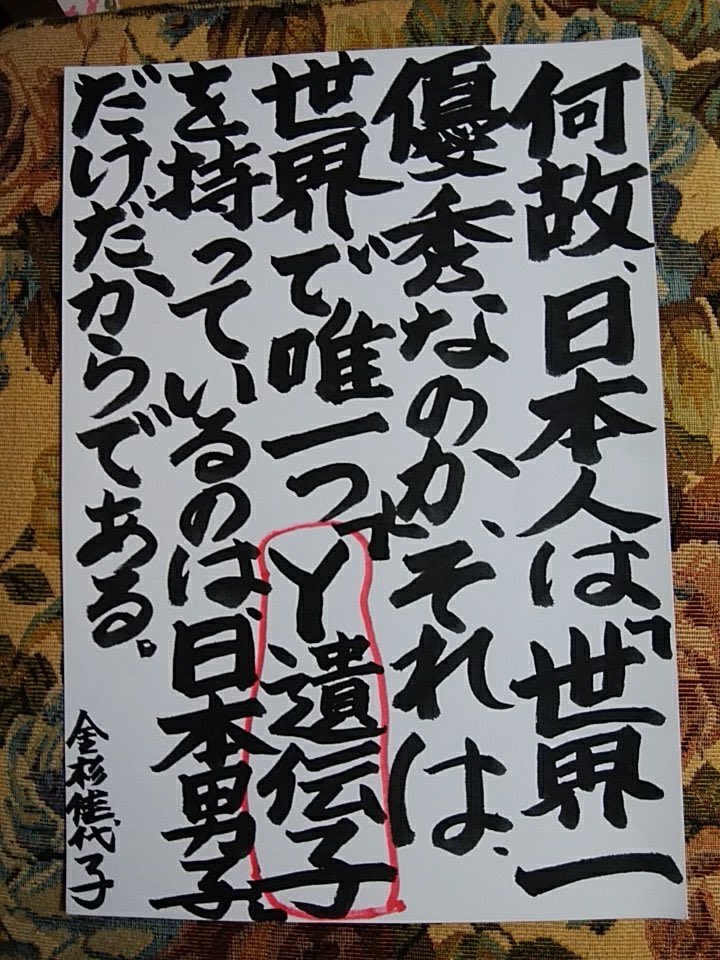 何故、日本人は「世界一
優秀なのか、それは、
世界で唯一つY遺伝子
を持っているのは、日本男子
だけ、だからである。
金杉佳代子